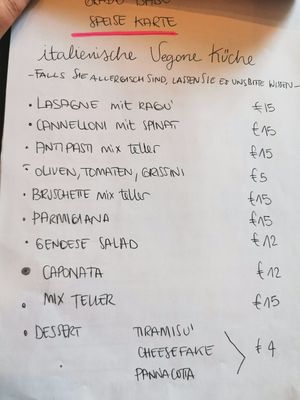 SPEISE KARTE
italienische Vegane Küche
-FALLS SIE ALLERGISCH SIND, LASSEN SIE ES UNS BITTE WISSEN-
• LASAGNE mit RAGU' €15
• CANNELLONI mit SPINAT €15
• ANTIPASTI mix teller €15
• OLIVEN, TOMATEN, GRISSINI €5
• BRUSCHETTE mix teller €15
• PARMIGIANA €15
• GENOESE SALAD €12
• CAPONATA €12
• MIX TELLER €15
• DESSERT TIRAMISU'
CHEESEFAKE €4
PANNACOTTA